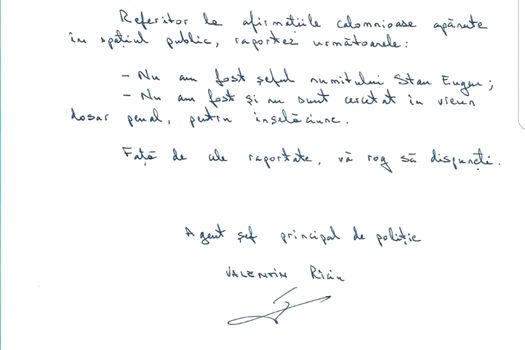 Referitor la afirmațiile calomnioase apărute
în spațiul public, raportez următoarele:
- Nu am fost șeful numitului Stan Eugen;
- Nu am fost și nu sunt cercetat în vreun
dosar penal, pentru înșelăciune.
Față de cele raportate, vă rog să dispuneți.
Agent șef principal de poliție
VALENTIN